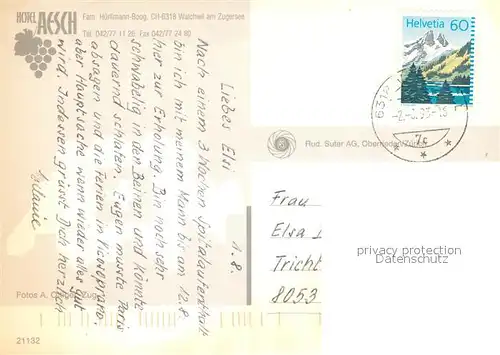 HOTEL
AESCH
Fam. Hürlimann-Boog, CH-6318 Walchwil am Zugersee
Tel. 042/77 11 26, Fax 042/77
Liebes Elsi
1.8.
Nach einem 3 Wochen Spitalaufenthalt
bin ich mit meinem Mann bis am 12.8.
hier zur Erholung. Bin noch sehr
schwabelig in den Beinen und könnte
dauernd schlafen. Eugen musste Paris
absagen und die Ferien in
aber Hauptsache wann wieder alles gut
wird. Indessen grüsst Dich herzlich
Helvetia 60
6318
Rud. Suter AG, Oberrieden/Zürich
Frau
Elsa
Tricht
8053
privacy protection
Datenschutz
Fotos A. Zug
21132